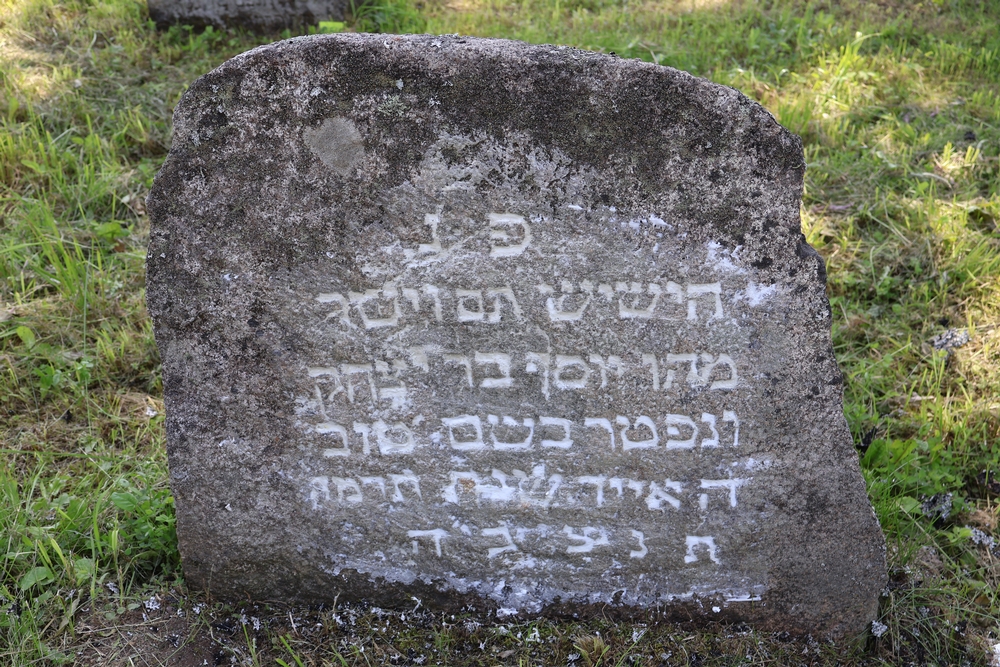 פ נ
הישיש תם וישר
מהו יוסף בר יצחק
ונפטר בשם טוב
ה אייר שנת תרמק
ת נ צ ב ה